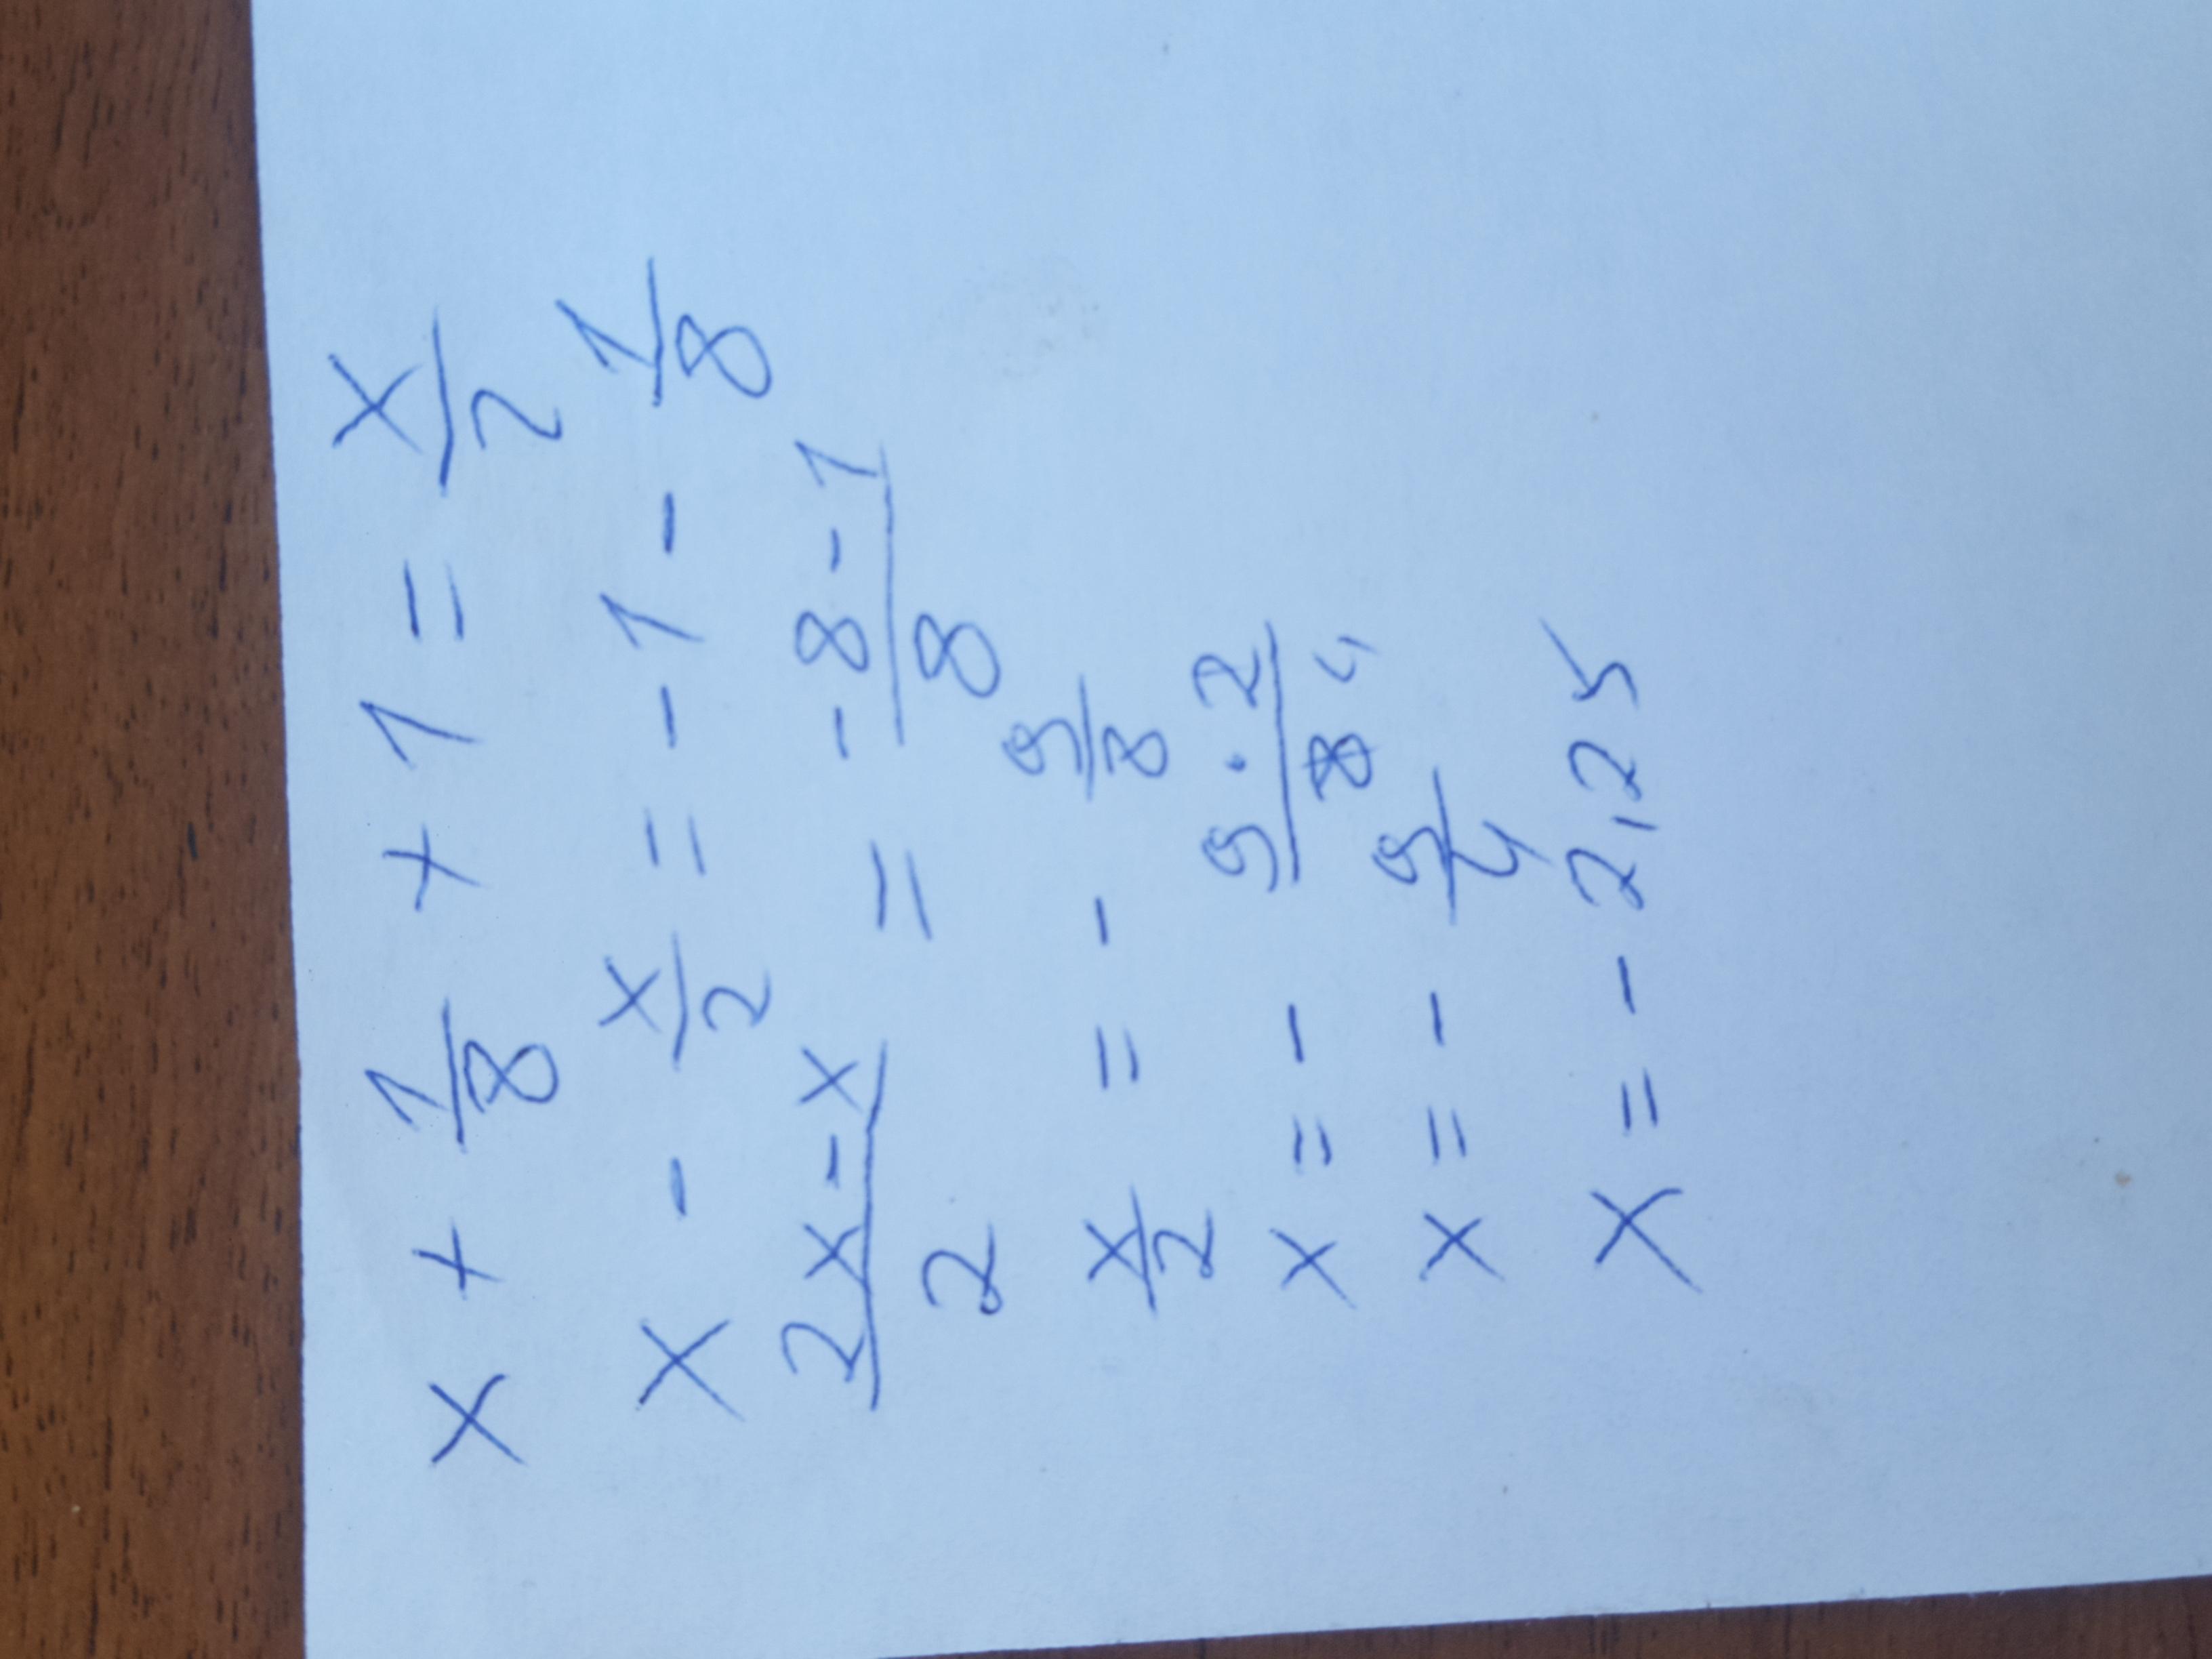 x + 1/8 + 1 = x/2
x - x/2 = - 1 - 1/8
2x-x/2 = -8-1/8
x/2 = - 9/8
x = - 9·2/8 4
x = - 9/4
x = - 2,25